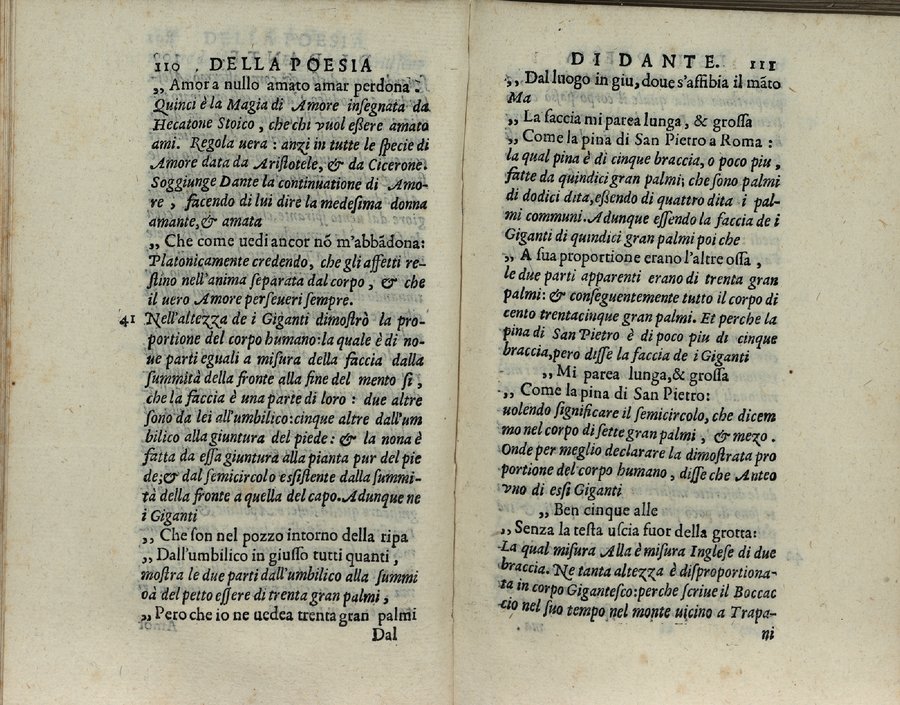 110 DELLA POESIA
„ Amor a nullo amato amar perdona.
Quinci è la Magia di Amore insegnata da
Hecatone Stoico, che chi vuol eßere amato
ami. Regola uera: anzi in tutte le specie di
Amore data da Aristotele, & da Cicerone.
Soggiunge Dante la continuatione di Amo-
re, facendo di lui dire la medesima donna
amante, & amata
„ Che come uedi ancor nō m'abbādona:
Platonicamente credendo, che gli affetti re-
stino nell'anima separata dal corpo, & che
il uero Amore perseueri sempre.
41 Nell'altezza de i Giganti dimostrò la pro-
portione del corpo humano: la quale è di no-
ue parti eguali a misura della faccia dalla
summità della fronte alla fine del mento si,
che la faccia è una parte di loro: due altre
sono da lei all'umbilico: cinque altre dall'um
bilico alla giuntura del piede: & la nona è
fatta da essa giuntura alla pianta pur del pie
de; & dal semicircolo esistente dalla summi-
tà della fronte a quella del capo. Adunque ne
i Giganti
„ Che son nel pozzo intorno della ripa
„ Dall'umbilico in giusso tutti quanti,
mostra le due parti dall'umbilico alla summi
oà del petto essere di trenta gran palmi,
„ Pero che io ne uedea trenta gran palmi
Dal
DI DANTE. 111
„ Dal luogo in giu, doue s'affibia il māto
Ma
„ La faccia mi parea lunga, & grossa
„ Come la pina di San Pietro a Roma:
la qual pina è di cinque braccia, o poco piu,
fatte da quindici gran palmi; che sono palmi
di dodici dita, eßendo di quattro dita i pal-
mi communi. Adunque essendo la faccia de i
Giganti di quindici gran palmi poi che
„ A sua proportione erano l'altre ossa,
le due parti apparenti erano di trenta gran
palmi: & conseguentemente tutto il corpo di
cento trentacinque gran palmi. Et perche la
pina di San Pietro è di poco piu di cinque
braccia, pero disse la faccia de i Giganti
„ Mi parea lunga, & grossa
„ Come la pina di San Pietro:
uolendo significare il semicircolo, che dicem
mo nel corpo di sette gran palmi, & mezo.
Onde per meglio declarare la dimostrata pro
portione del corpo humano, disse che Anteo
vno di essi Giganti
„ Ben cinque alle
„ Senza la testa uscia fuor della grotta:
La qual misura Alla è misura Inglese di due
braccia. Ne tanta altezza è disproportiona-
ta in corpo Gigantesco: perche scriue il Boccac
cio nel suo tempo nel monte uicino a Trapa-
ni